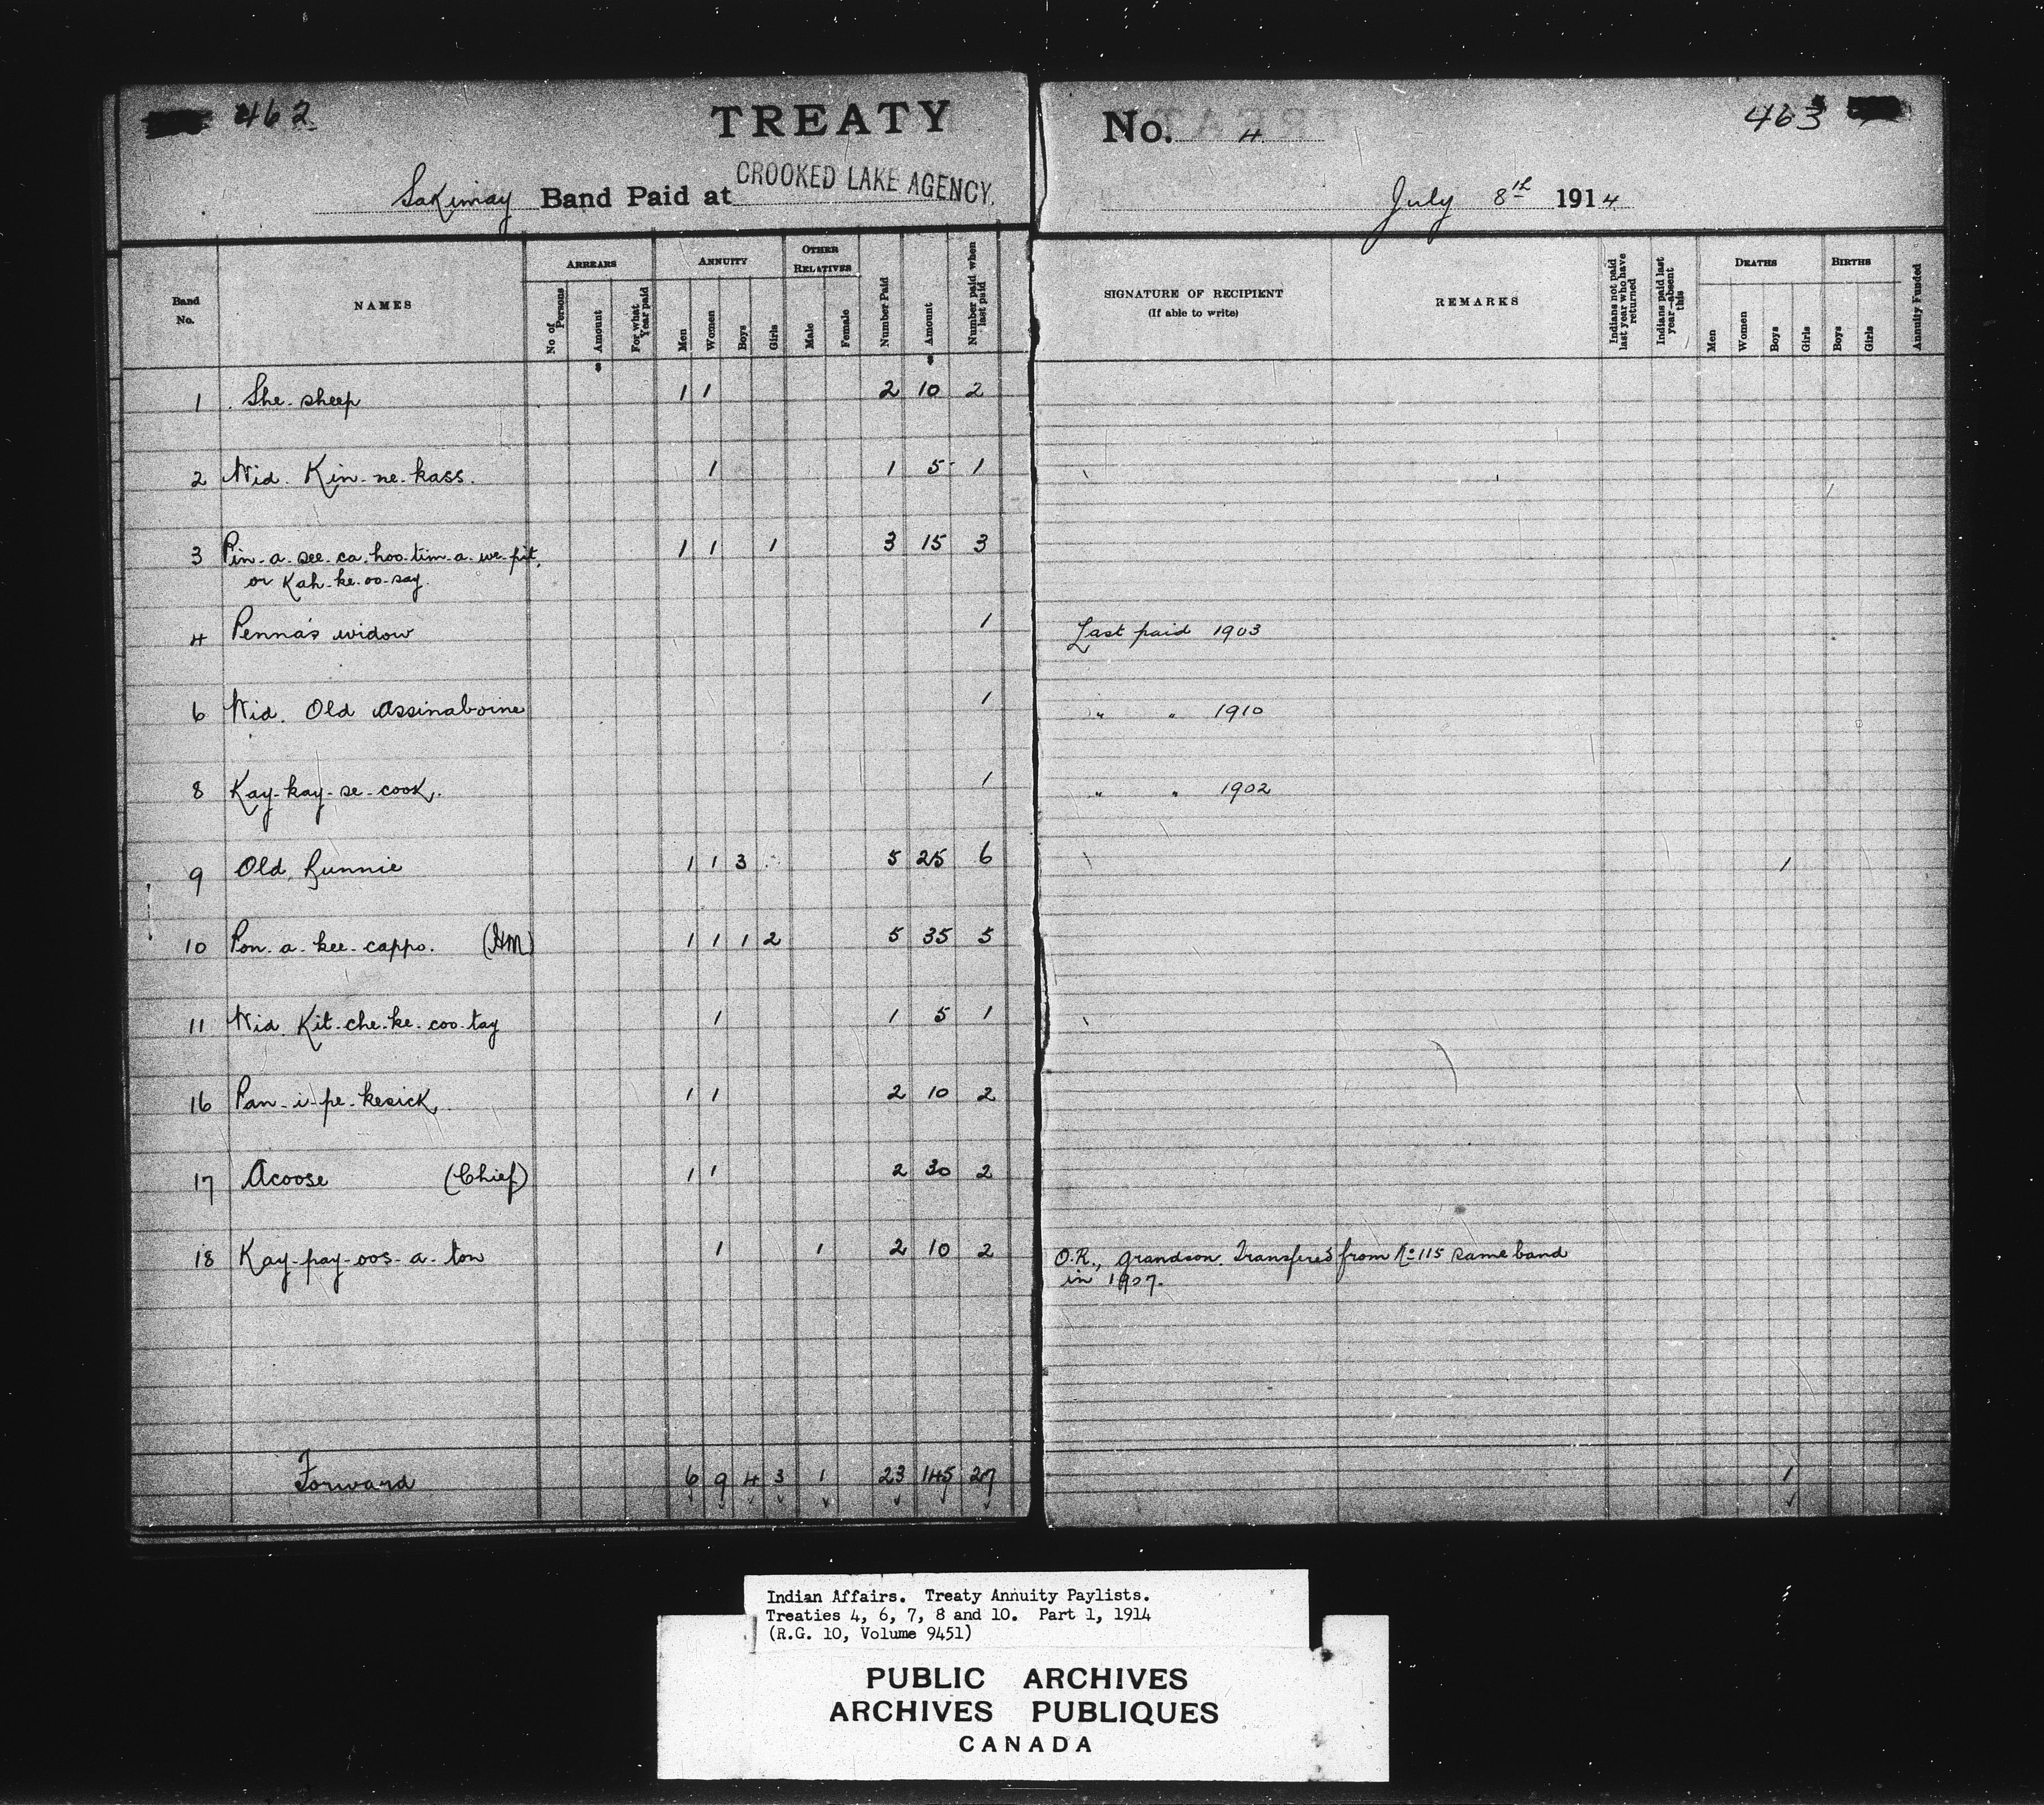 462
TREATY
No. 4
463
Sakimay Band Paid at CROOKED LAKE AGENCY.
July 8th 1914
Band No.
NAMES
ARREARS
No of Persons
Amount
For what Year paid
ANNUITY
Men
Women
Boys
Girls
OTHER RELATIVES
Male
Female
Number Paid
Amount
Number paid when last paid
SIGNATURE OF RECIPIENT
(If able to write)
REMARKS
Indians not paid last year who have returned
Indians paid last year—absent this
DEATHS
Men
Women
Boys
Girls
BIRTHS
Boys
Girls
Annuity Funded
1 She-sheep 1 1 2 10 2
2 Wid. Kin-ne-kass. 1 1 5 1
3 Pin-a-see-ca-hoo-tim-a-we-pit, 1 1 1 3 15 3
or Kah-ke-oo-say.
4 Penna's widow 1 Last paid 1903
6 Wid. Old Assinaboine 1 " " 1910
8 Kay-kay-se-cook. 1 " " 1902
9 Old Runnie 1 1 3 5 25 6 1
10 Pon-a-kee-cappo. (HM) 1 1 1 2 5 35 5
11 Wid. Kit-che-ke-coo-tay 1 1 5 1
16 Pan-i-pe-kesick. 1 1 2 10 2
17 Acoose (Chief) 1 1 2 30 2
18 Kay-pay-oos-a-ton 1 1 2 10 2 O.R., grandson. Transfered from No 115 same band
in 1907.
Forward 6 9 4 3 1 23 145 27 1
Indian Affairs. Treaty Annuity Paylists.
Treaties 4, 6, 7, 8 and 10. Part 1, 1914
(R.G. 10, Volume 9451)
PUBLIC ARCHIVES
ARCHIVES PUBLIQUES
CANADA